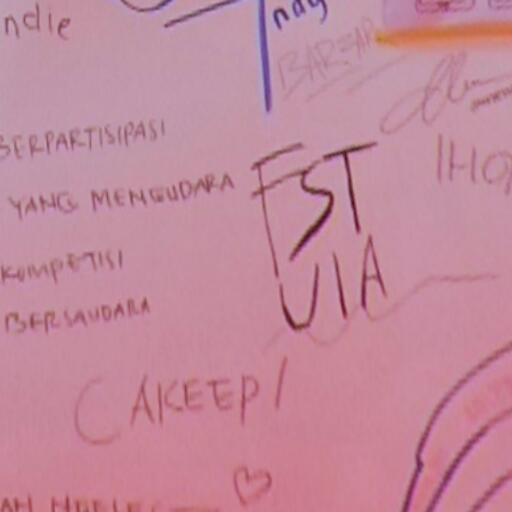 ndie
BERPARTISIPASI
YANG MENGUDARA
KOMPETISI
BERSAUDARA
FST
UIA
CAKEEP!